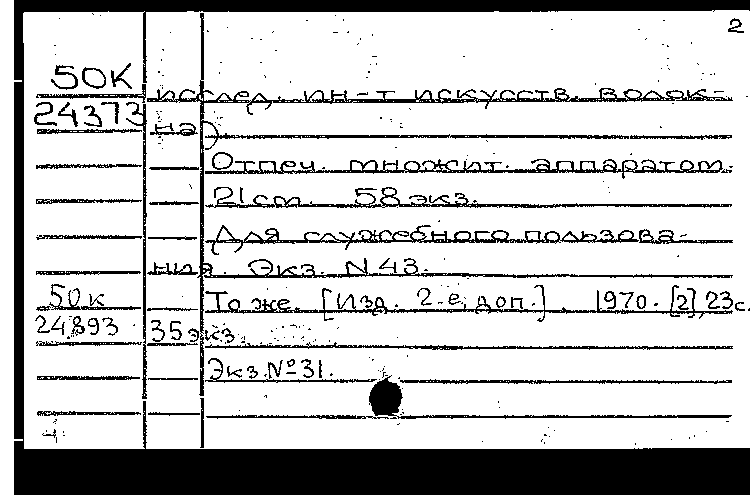 2
50К
исслед. ин-т искусств. волок-
24373
на).
Отпеч. множит. аппаратом.
21 cm. 58 экз.
Для служебного пользова-
ния. Экз. N 43.
50к То же. [Изд. 2-е, доп.]. 1970. [2], 23 с.
24893 35 экз.
Экз. № 31.